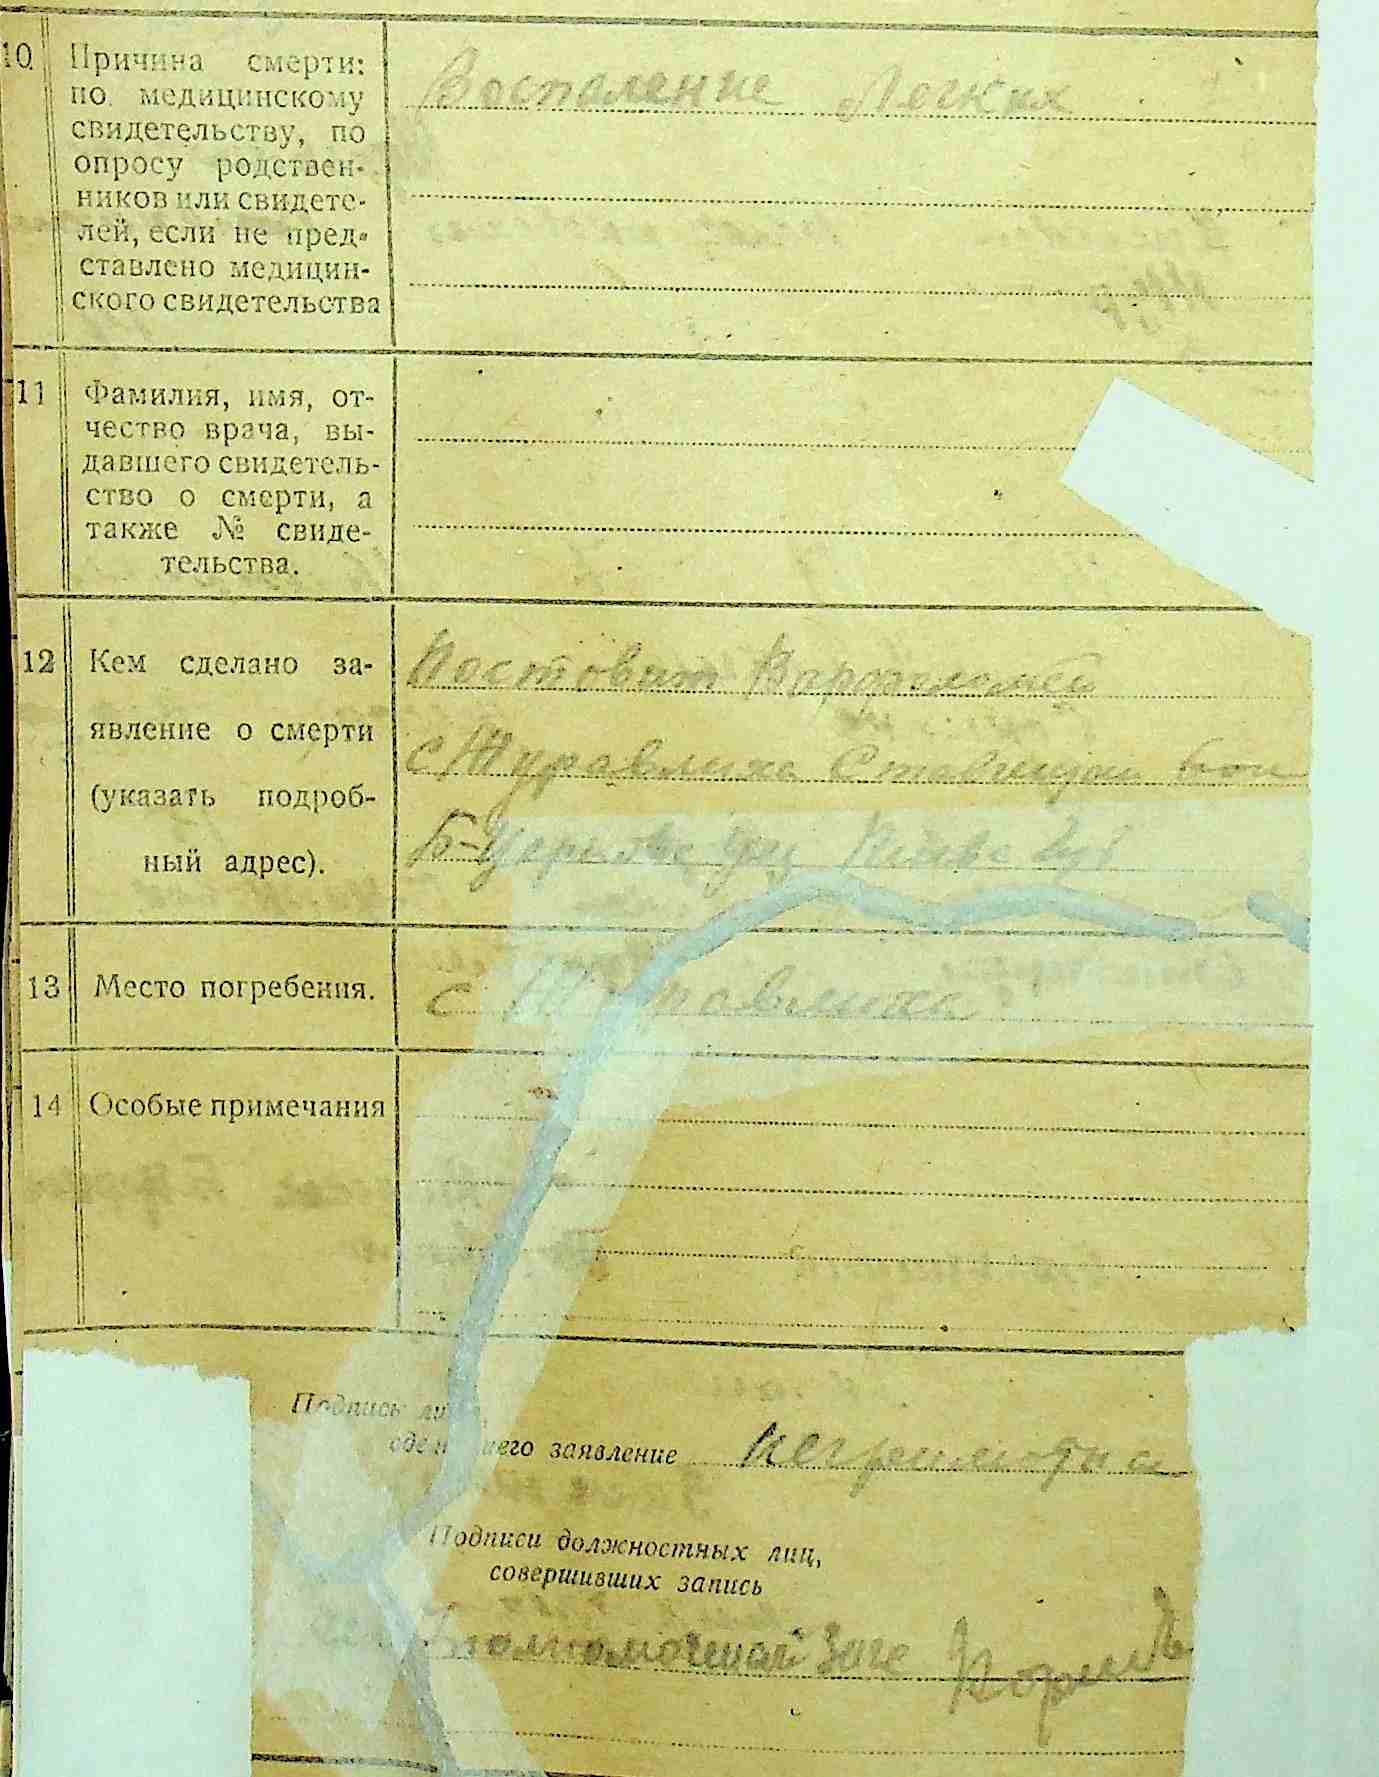 10. Причина смерти:
по медицинскому
свидетельству, по
опросу родствен-
ников или свидете-
лей, если не пред-
ставлено медицин-
ского свидетельства
Воспаление Легких
11 Фамилия, имя, от-
чество врача, вы-
давшего свидетель-
ство о смерти, а
также № свиде-
тельства.
12 Кем сделано за-
явление о смерти
(указать подроб-
ный адрес).
Постовит
с Журавлиха
Б-Церковс
13 Место погребения.
с Журавлиха
14 Особые примечания
Подпись лица,
сделавшего заявление
Подписи должностных лиц,
совершивших запись